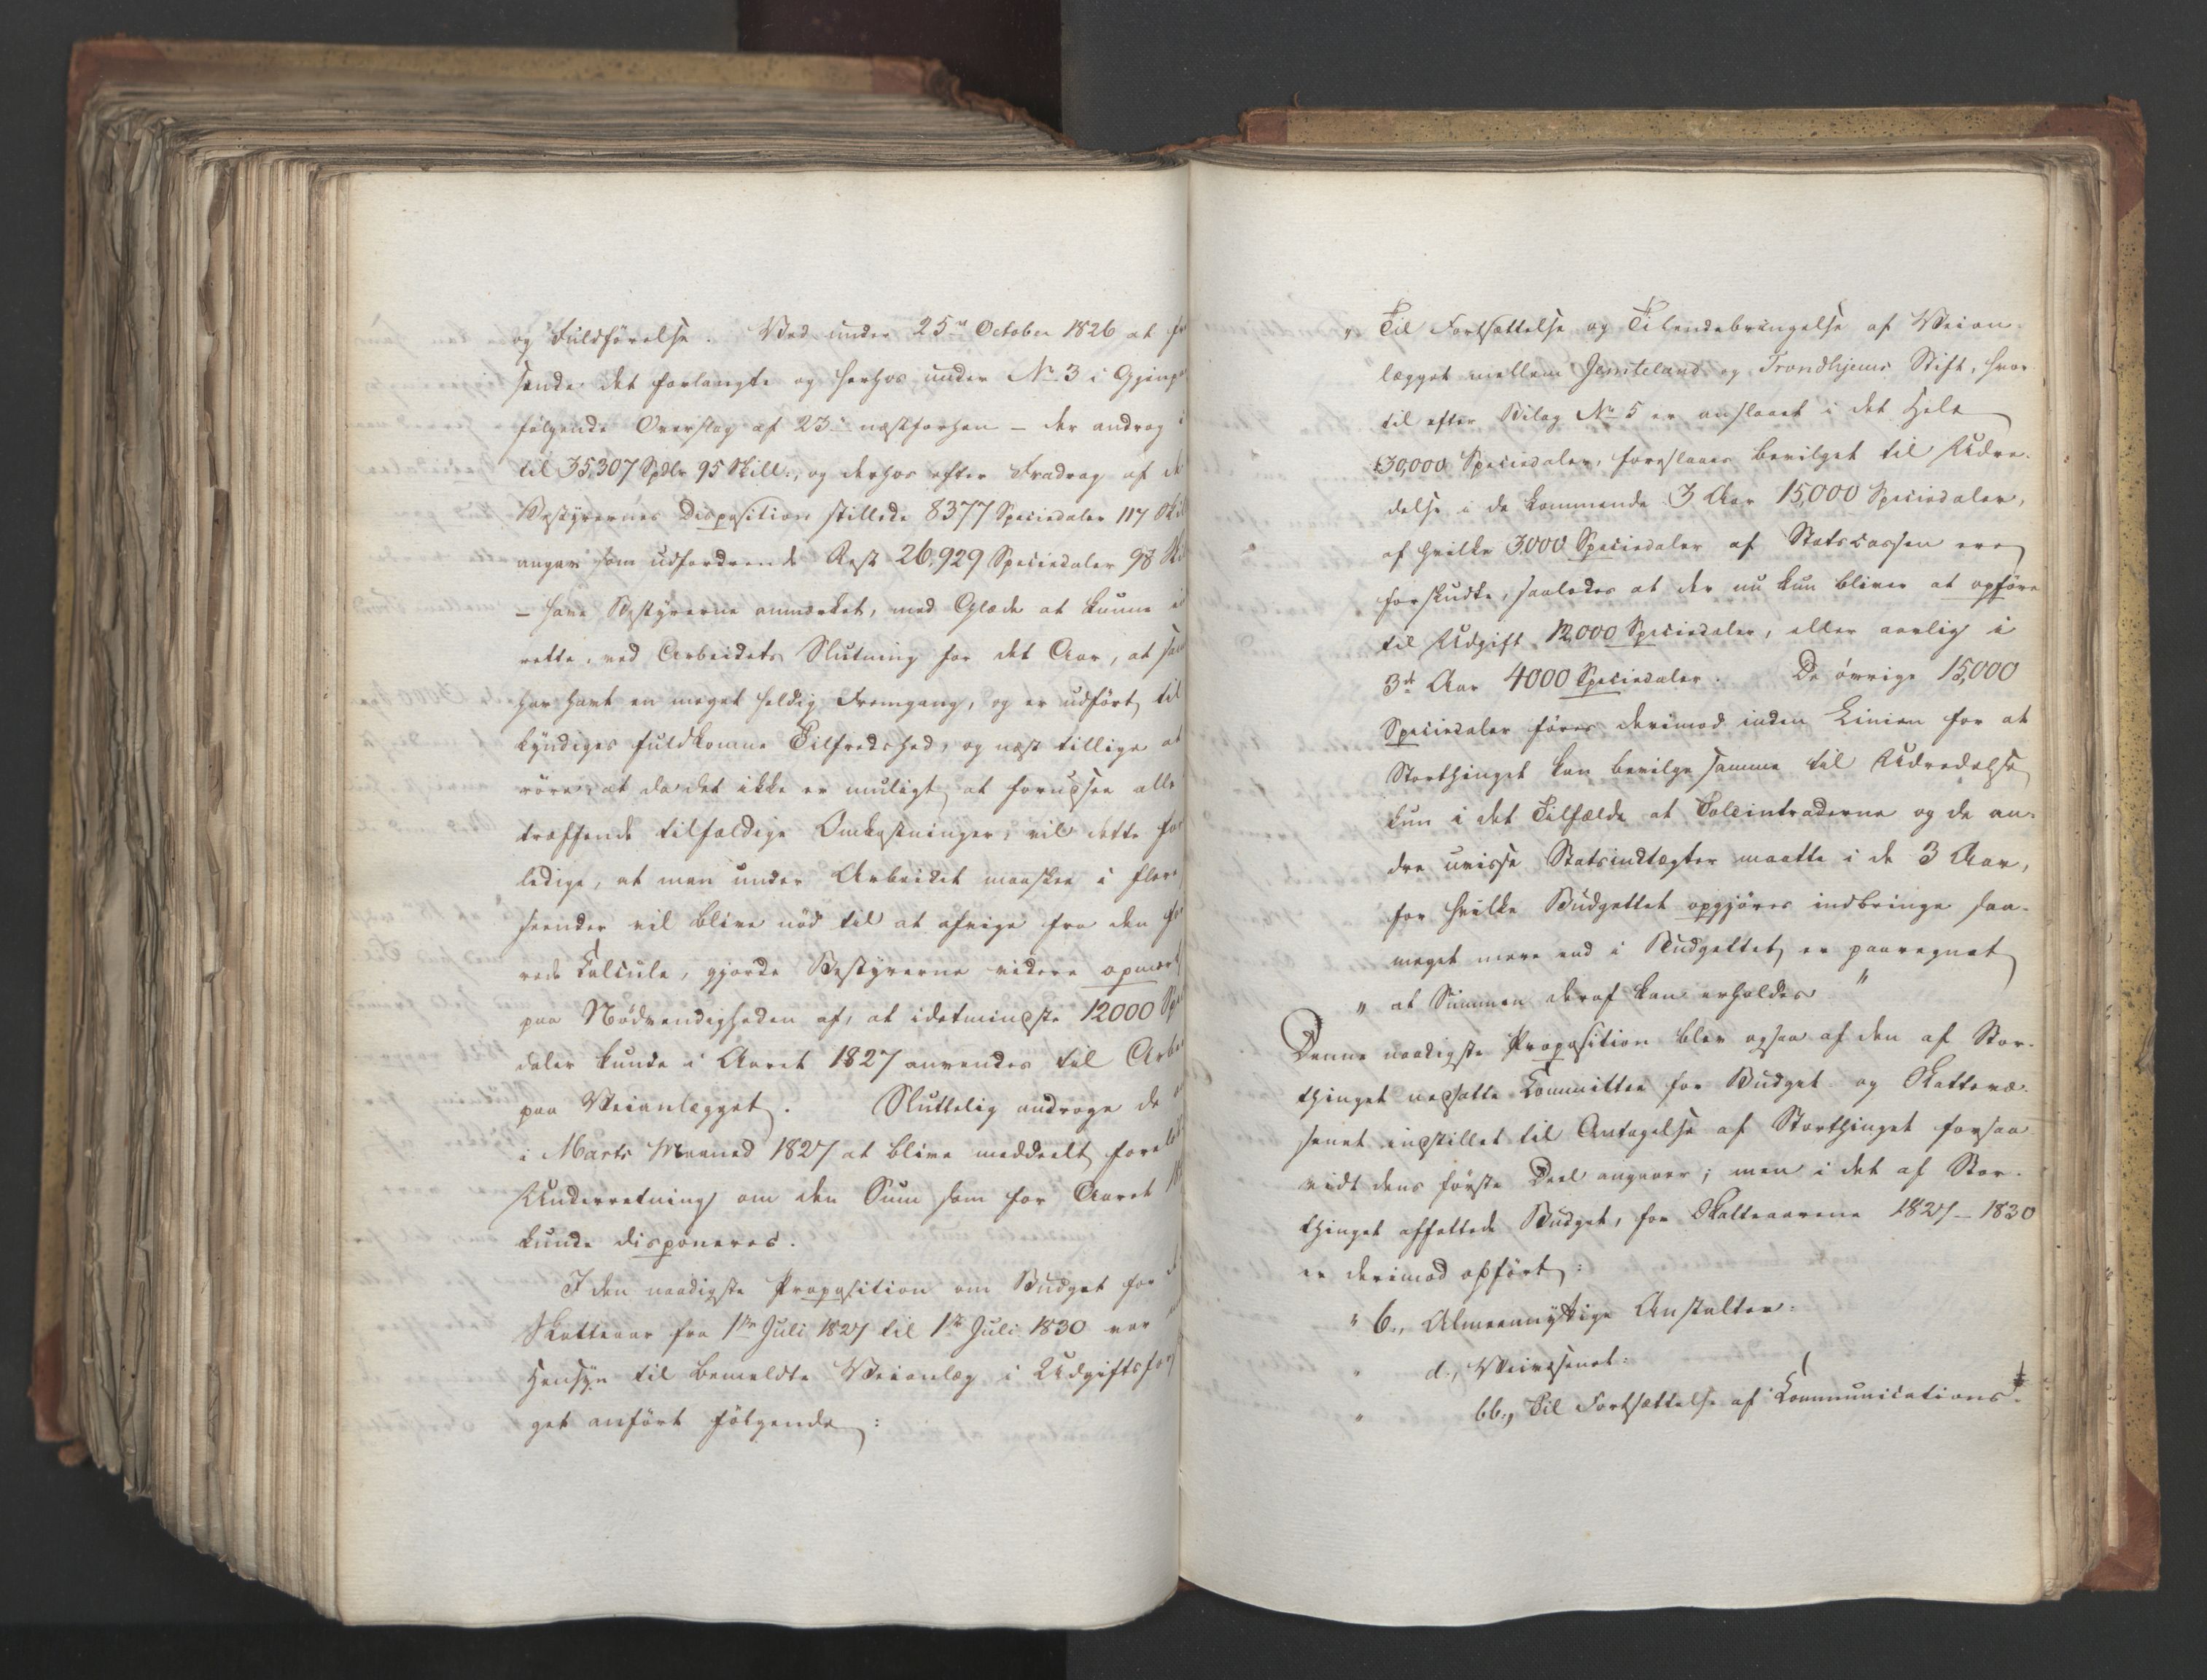 og Fuldførelse. Ved under 25de October 1826 at
sende det forlangte og herhos under No 3 i Gjenpart
følgende Overslag af 23de næstforhen – der androg
til 35,307 Spdlr 95 Skill:, og derhos efter Fradrag af de
Bestyrernes Disposition stillede 8377 Speciedaler 117
angav som udfordrende Rest 26,929 Speciedaler 98
– have Bestyrerne anmærket, med Glæde at kunne
rette, ved Arbeidets Slutning for det Aar, at
har havt en meget heldig Fremgang, og er udført til
kyndiges fuldkomne Tilfredshed, og næst tillige at
røre, at da det ikke er muligt at forudsee alle
træffende tilfældige Omkostninger, vil dette
ledige, at man under Arbeidet maaskee i flere
seender vil blive nød til at afvige fra den
rede Calcule, gjorde Bestyrerne videre opmærk
paa Nødvendigheden af, at idetmindste 12000 Spe
daler kunde i Aaret 1827 anvendes til Arbei
paa Veianlægget. Sluttelig androge de
i Marts Maaned 1827 at blive meddeelt foreløb
Underretning om den Sum som for Aaret
kunde disponeres.
I den naadigste Proposition om Budget for
Skatteaar fra 1ste Juli 1827 til 1ste Juli 1830 var
Hensyn til bemeldte Veianlæg i Udgiftsfor
get anført følgende:
"Til Fortsættelse og Tilendebringelse af Veian-
lægget mellem Jemteland og Trondhjems Stift, hvor-
til efter Bilag No 5 er anslaaet i det Hele
30,000 Speciedaler, foreslaaes bevilget til Udre-
delse i de kommende 3 Aar 15,000 Speciedaler,
af hvilke 3,000 Speciedaler af Statscassen ere
forskudte, saaledes at der nu kun bliver at opføre
til Udgift 12,000 Speciedaler, eller aarlig i
3de Aar 4000 Speciedaler. De øvrige 15,000
Speciedaler føres derimod inden Linien for at
Storthinget kan bevilge samme til Udredelse
kun i det Tilfælde at Toldintraderne og de an-
dre uvisse Statsindtægter maatte i de 3 Aar,
for hvilke Budgettet opgjøres indbringe saa-
meget mere end i Budgettet er paaregnet
" at Summen deraf kan erholdes "
Denne naadigste Proposition blev ogsaa af den af Stor-
thinget nedsatte Committee for Budget og Skattevæ-
senet indstillet til Antagelse af Storthinget forsaa-
vidt dens første Deel angaaer; men i det af Stor-
thinget affattede Budget, for Skatteaarene 1827–1830
er derimod opført:
" 6., Almeennyttige Anstalter:
" d., Veivæsenet:
" bb., Til Fortsættelse af Communications-